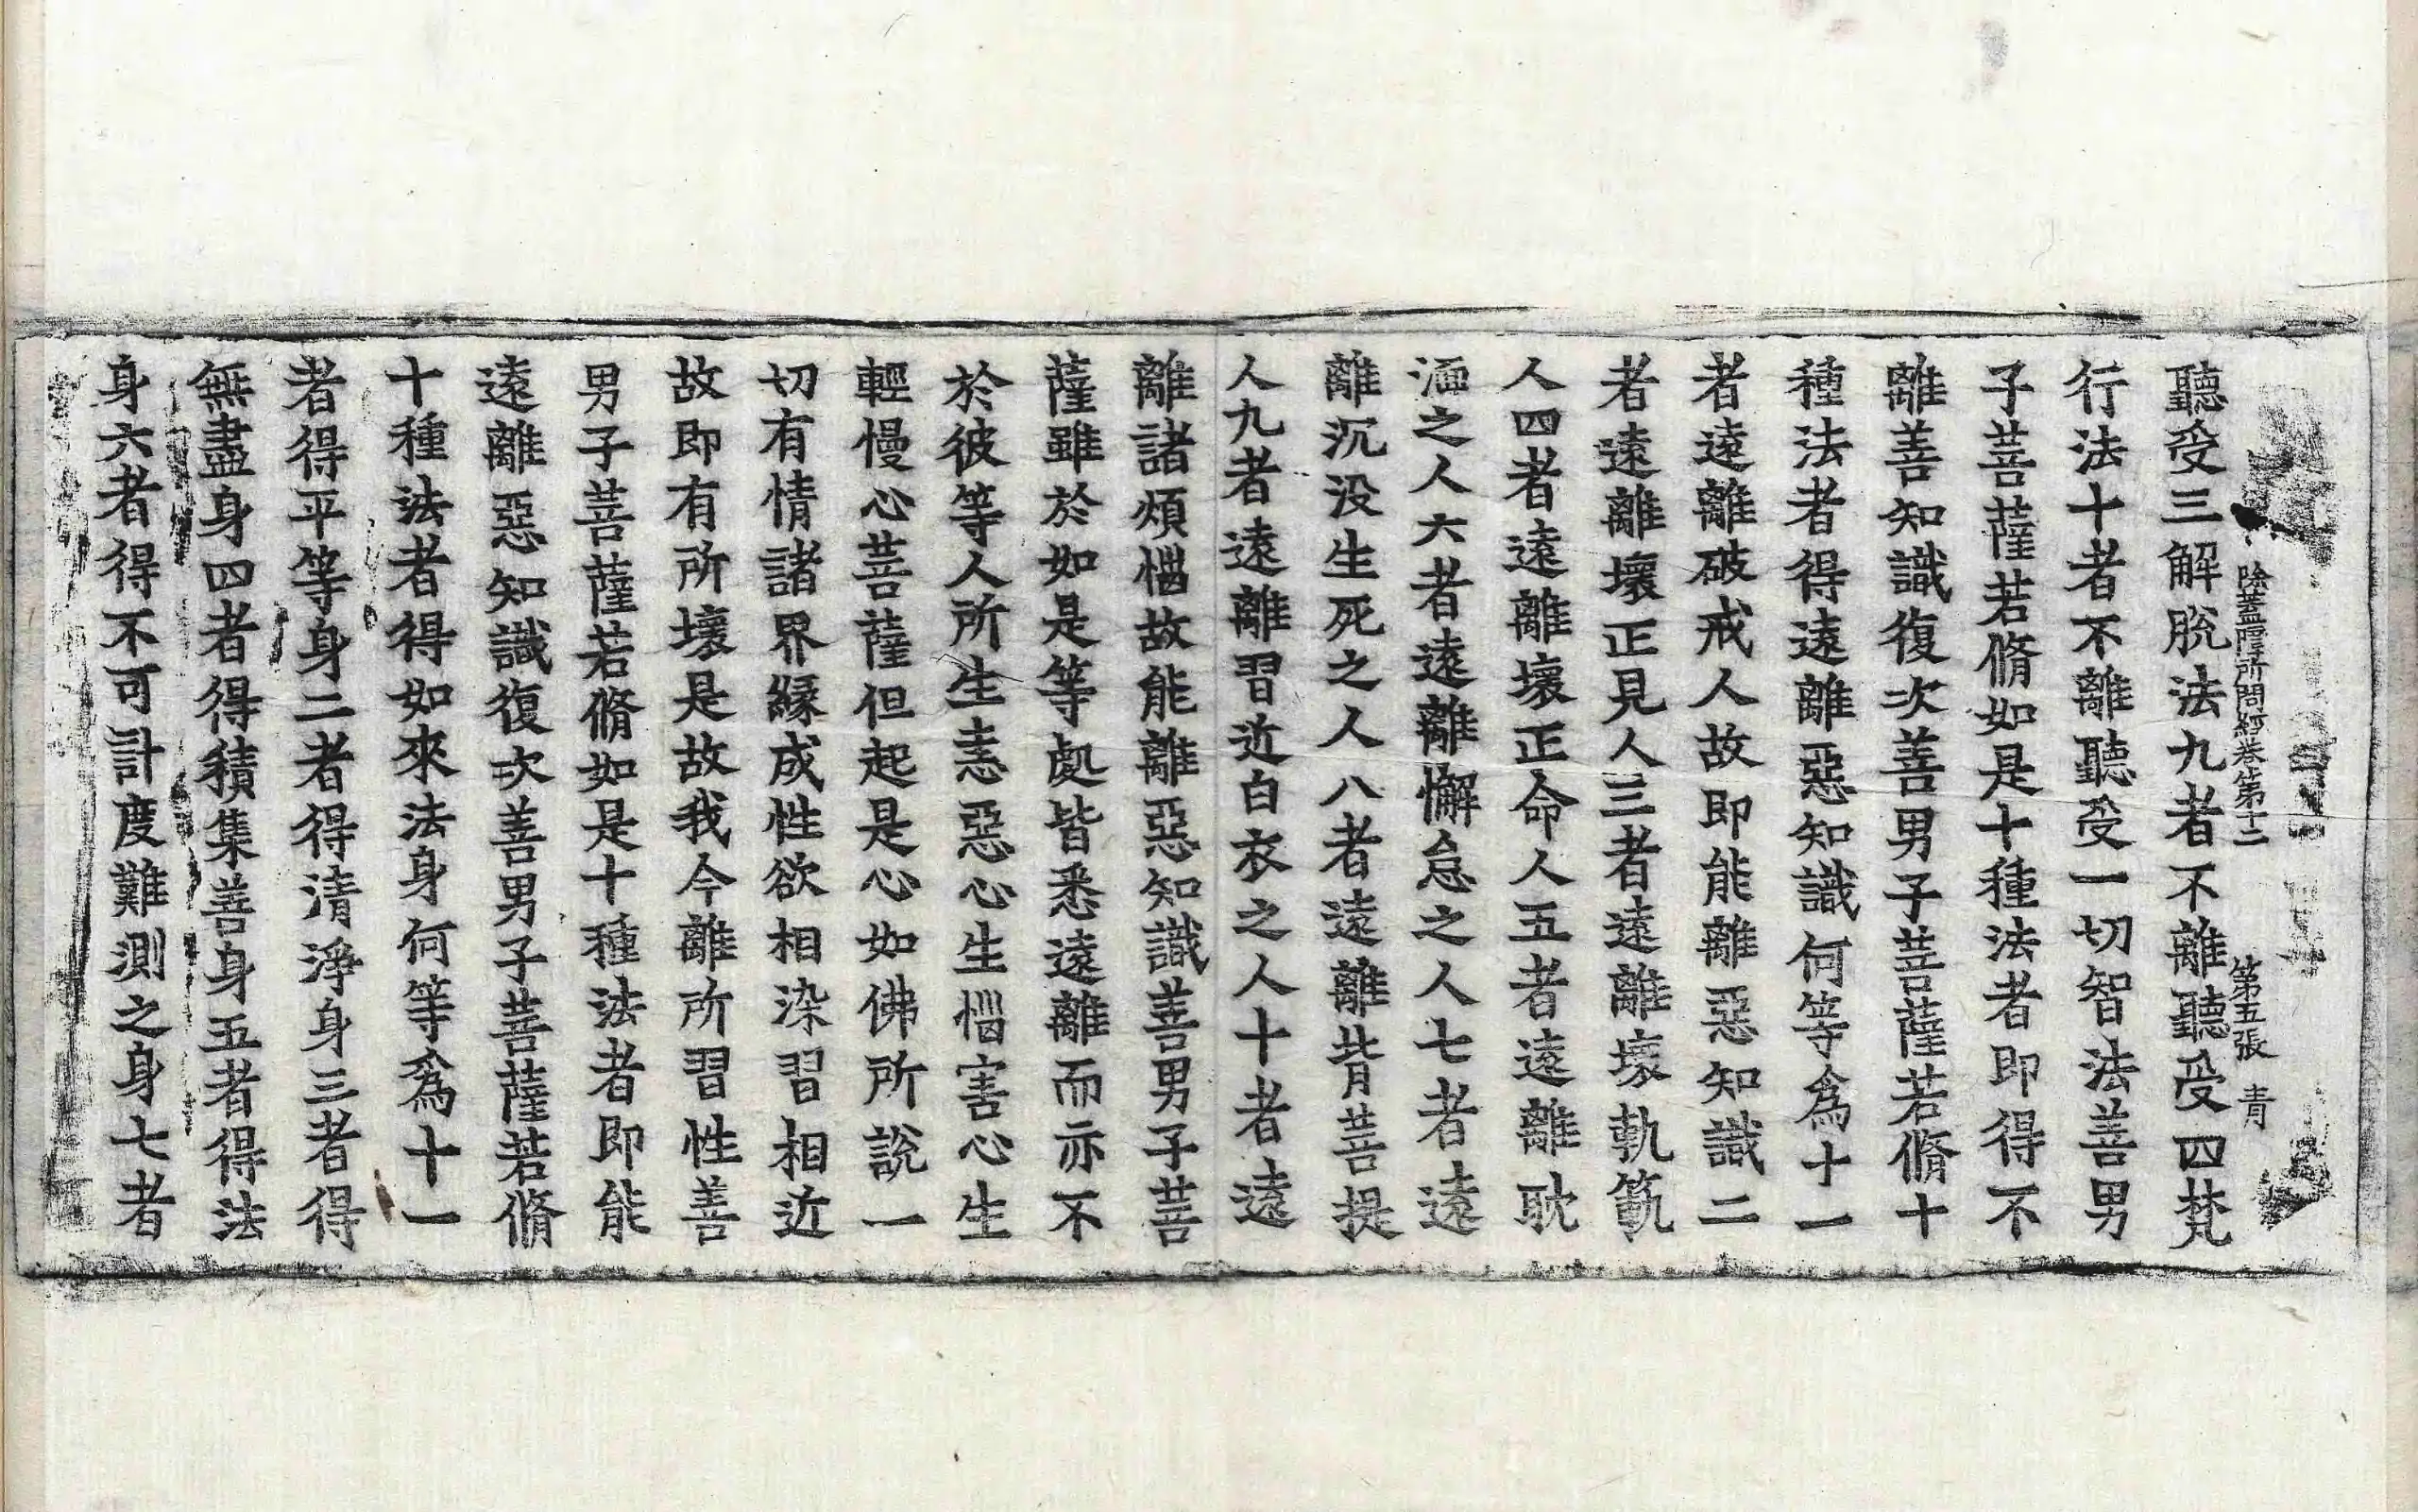 除蓋障所問經卷第十二　第五張　青
聽受三解脫法九者不離聽受四梵
行法十者不離聽受一切智法善男
子菩薩若脩如是十種法者即得不
離善知識復次善男子菩薩若脩十
種法者得遠離惡知識何等為十一
者遠離破戒人故即能離惡知識二
者遠離壞正見人三者遠離壞軌範
人四者遠離壞正命人五者遠離耽
湎之人六者遠離懈怠之人七者遠
離沉没生死之人八者遠離背菩提
人九者遠離習近白衣之人十者遠
離諸煩惱故能離惡知識善男子菩
薩雖於如是等處皆悉遠離而亦不
於彼等人所生恚惡心生惱害心生
輕慢心菩薩但起是心如佛所說一
切有情諸界緣成性欲相染習相近
故即有所壞是故我今離所習性善
男子菩薩若脩如是十種法者即能
遠離惡知識復次善男子菩薩若脩
十種法者得如來法身何等為十一
者得平等身二者得清淨身三者得
無盡身四者得積集善身五者得法
身六者得不可計度難測之身七者